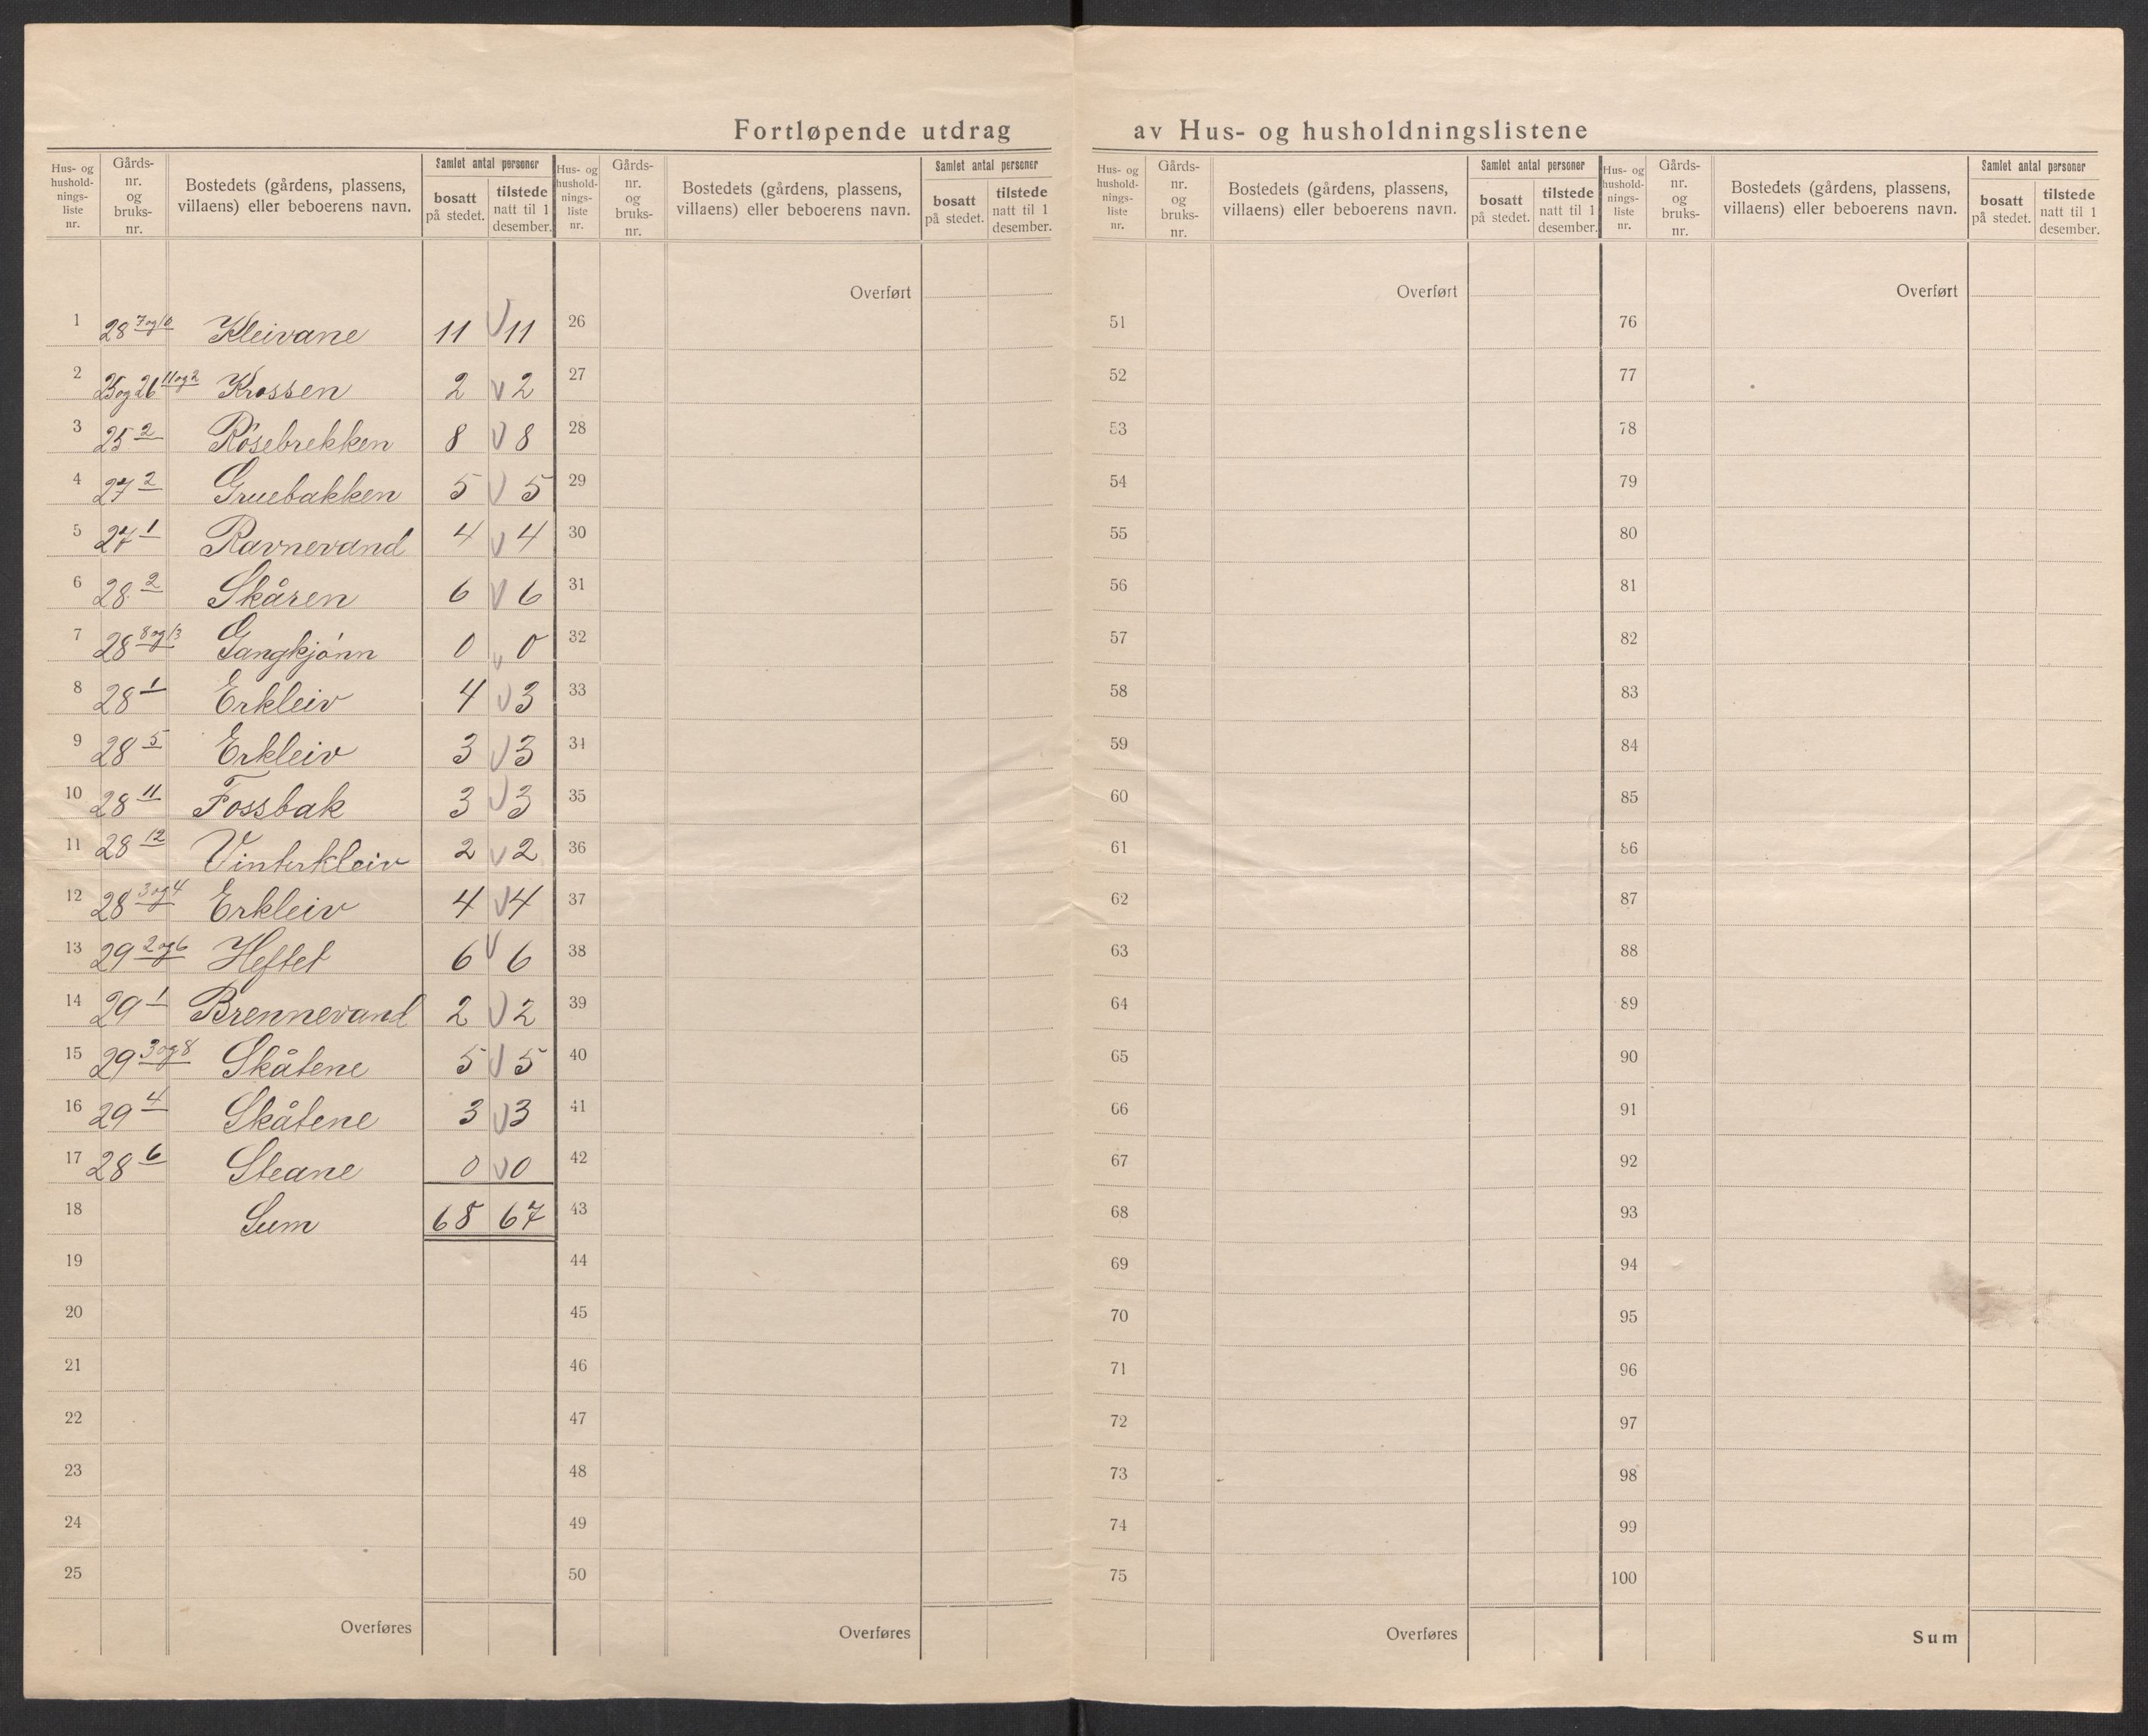 Fortløpende utdrag av Hus- og husholdningslistene
Hus- og hushold-nings-liste nr. | Gårds-nr. og bruks-nr. | Bostedets (gårdens, plassens, villaens) eller beboerens navn. | Samlet antal personer | bosatt på stedet. | tilstede natt til 1 desember.
1 28 7og10 Kleivane 11 11
2 25og26 11og2 Krossen 2 2
3 25 2 Rösebrekken 8 8
4 27 2 Gruebakken 5 5
5 27 1 Ravnevand 4 4
6 28 2 Skåren 6 6
7 28 8og13 Gangkjönn 0 0
8 28 1 Erkleiv 4 3
9 28 5 Erkleiv 3 3
10 28 11 Fossbak 3 3
11 28 12 Vinterkleiv 2 2
12 28 3og4 Erkleiv 4 4
13 29 2og6 Heftet 6 6
14 29 1 Brennevand 2 2
15 29 3og8 Skåtene 5 5
16 29 4 Skåtene 3 3
17 28 6 Steane 0 0
18 Sum 68 67
19
20
21
22
23
24
25
Overføres
Hus- og hushold-nings-liste nr. | Gårds-nr. og bruks-nr. | Bostedets (gårdens, plassens, villaens) eller beboerens navn. | Samlet antal personer | bosatt på stedet. | tilstede natt til 1 desember.
Overført
26
27
28
29
30
31
32
33
34
35
36
37
38
39
40
41
42
43
44
45
46
47
48
49
50
Overføres
Hus- og hushold-nings-liste nr. | Gårds-nr. og bruks-nr. | Bostedets (gårdens, plassens, villaens) eller beboerens navn. | Samlet antal personer | bosatt på stedet. | tilstede natt til 1 desember.
Overført
51
52
53
54
55
56
57
58
59
60
61
62
63
64
65
66
67
68
69
70
71
72
73
74
75
Overføres
Hus- og hushold-nings-liste nr. | Gårds-nr. og bruks-nr. | Bostedets (gårdens, plassens, villaens) eller beboerens navn. | Samlet antal personer | bosatt på stedet. | tilstede natt til 1 desember.
Overført
76
77
78
79
80
81
82
83
84
85
86
87
88
89
90
91
92
93
94
95
96
97
98
99
100
Sum